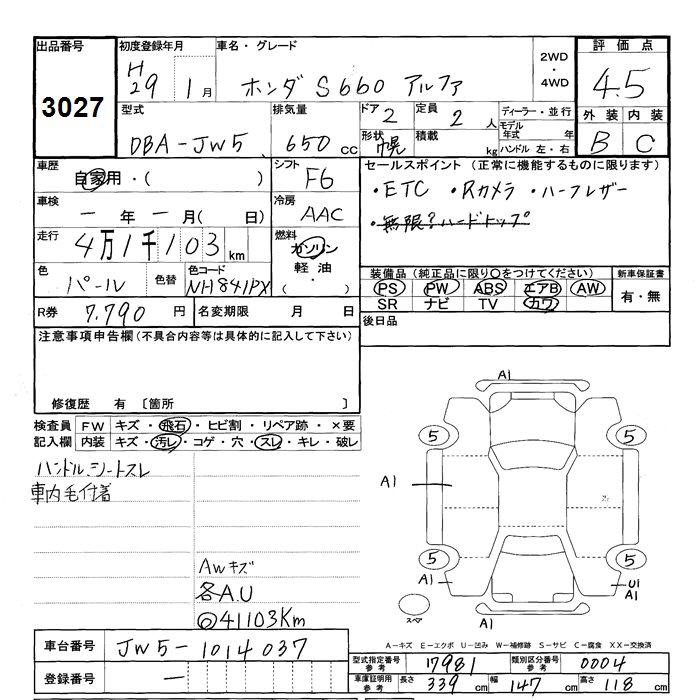 出品番号 初度登録年月 車名・グレード 2WD ・ 4WD 評価点
3027 H29 1月 ホンダ S660 アルファ 4.5
型式 排気量 ドア 2 定員 2人 ディーラー・並行 外装 内装
DBA-JW5 650cc 形状 幌 積載 kg モデル年式 年 B C
ハンドル 左・右
車歴 自家用・( ) シフト F6 セールスポイント (正常に機能するものに限ります)
車検 一年一月( 日) 冷房 AAC ・ETC ・Rカメラ ・ハーフレザー
・無限?ハードトップ
走行 4万1千103km 燃料 ガソリン 軽油 ・( )
色 パール 色替 色コード NH841PX 装備品 (純正品に限り〇をつけてください) 新車保証書
PS PW ABS エアB AW 有・無
SR ナビ TV カワ
R券 7,790円 名変期限 月 日 後日品
注意事項申告欄 (不具合内容等は具体的に記入して下さい)
修復歴 有 〔箇所 〕
検査員 FW キズ・飛石・ヒビ割・リペア跡・×要
記入欄 内装 キズ・汚レ・コゲ・穴・スレ・キレ・破レ
ハンドル、シートスレ
車内毛付着
AWキズ
各A.U
◎41103Km
A1
5 5
A1
5 5
A1 U1
A1
スペア A1
A-キズ E-エクボ U-凹み W-補修跡 S-サビ C-腐食 XX-交換済
車台番号 JW5-1014037
登録番号 一
型式指定番号 参考 17981 類別区分番号 参考 0004
車庫証明用 参考 長さ 339cm 幅 147cm 高さ 118cm